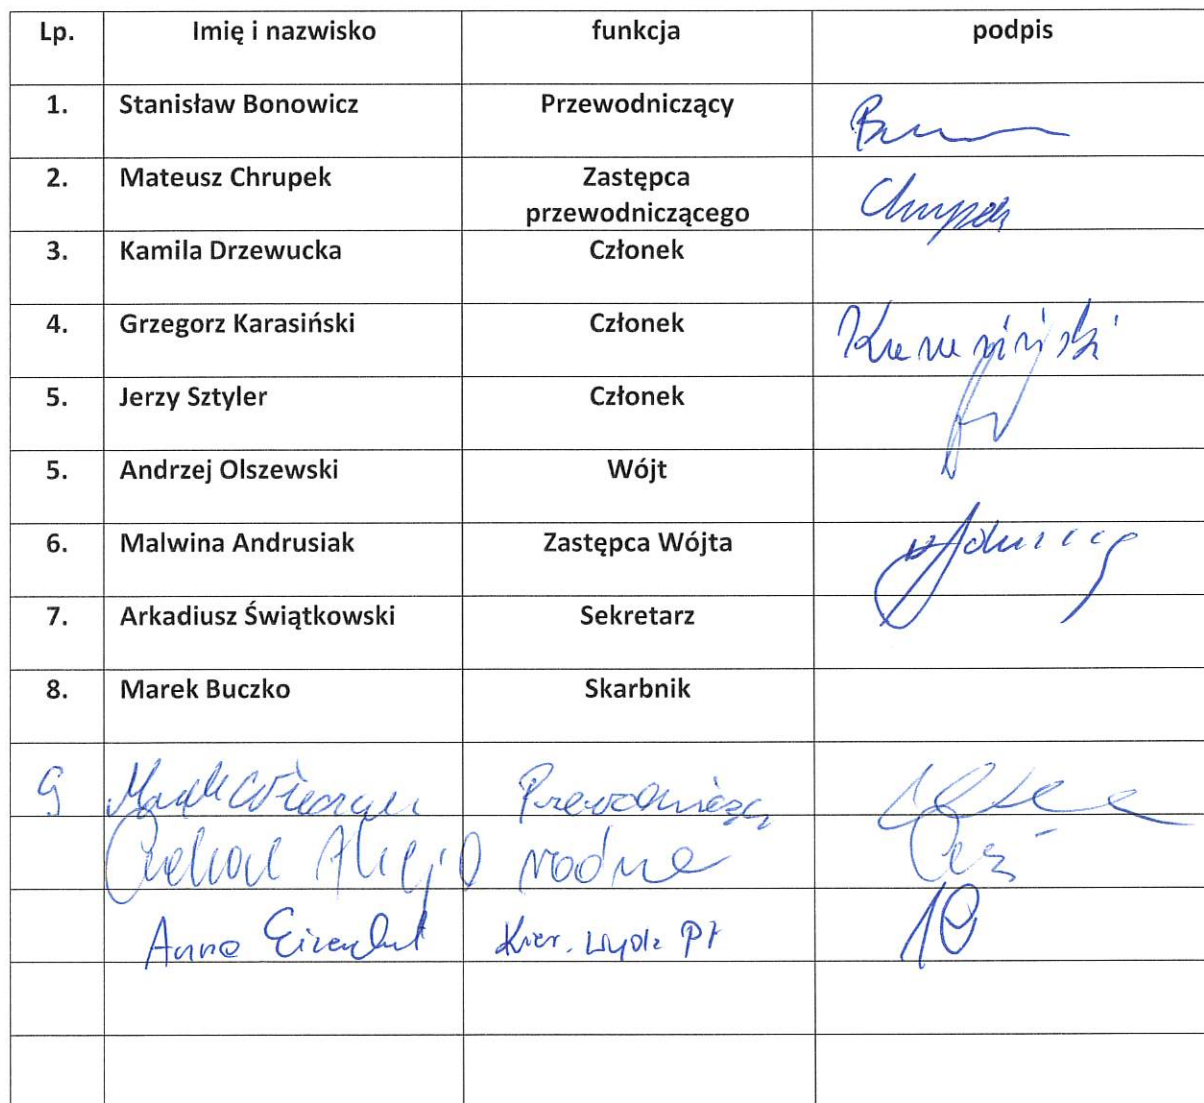 Lp. Imię i nazwisko funkcja podpis
1. Stanisław Bonowicz Przewodniczący
2. Mateusz Chrupek Zastępca
przewodniczącego Chrupek
3. Kamila Drzewucka Członek
4. Grzegorz Karasiński Członek Karasiński
5. Jerzy Sztyler Członek
5. Andrzej Olszewski Wójt
6. Malwina Andrusiak Zastępca Wójta
7. Arkadiusz Świątkowski Sekretarz
8. Marek Buczko Skarbnik
9 Marek Przewodniczący
radna
Anna Kier. Wydz